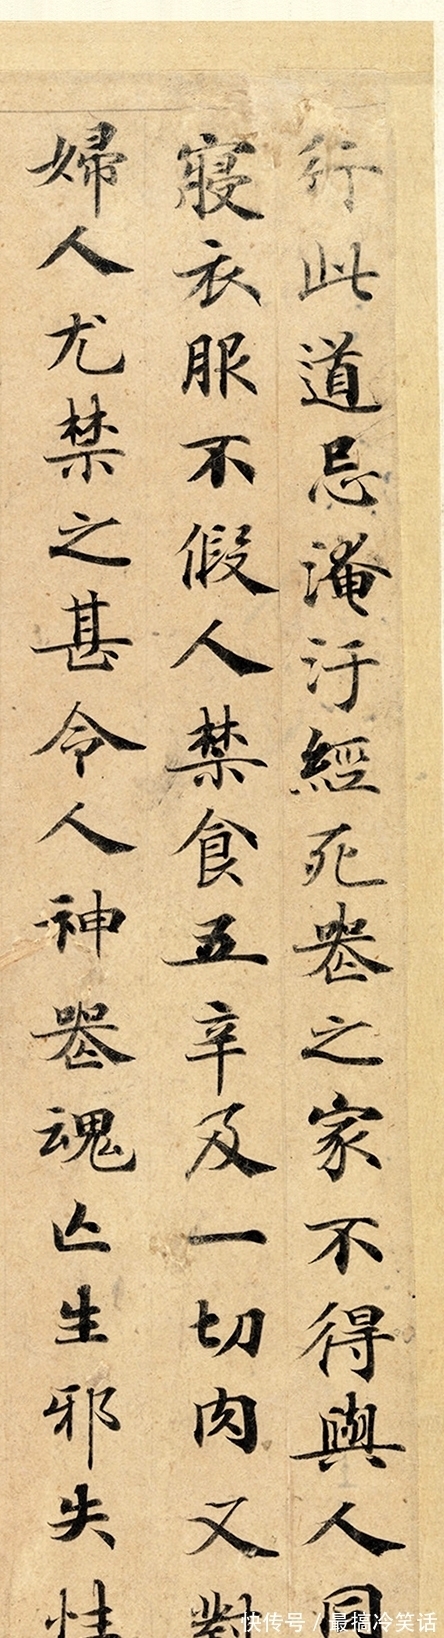 行此道忌淹汙經死喪之家不得與人同
寢衣服不假人禁食五辛及一切肉又對
婦人尤禁之甚令人神喪魂亡生邪失性
快传号/最搞冷笑话